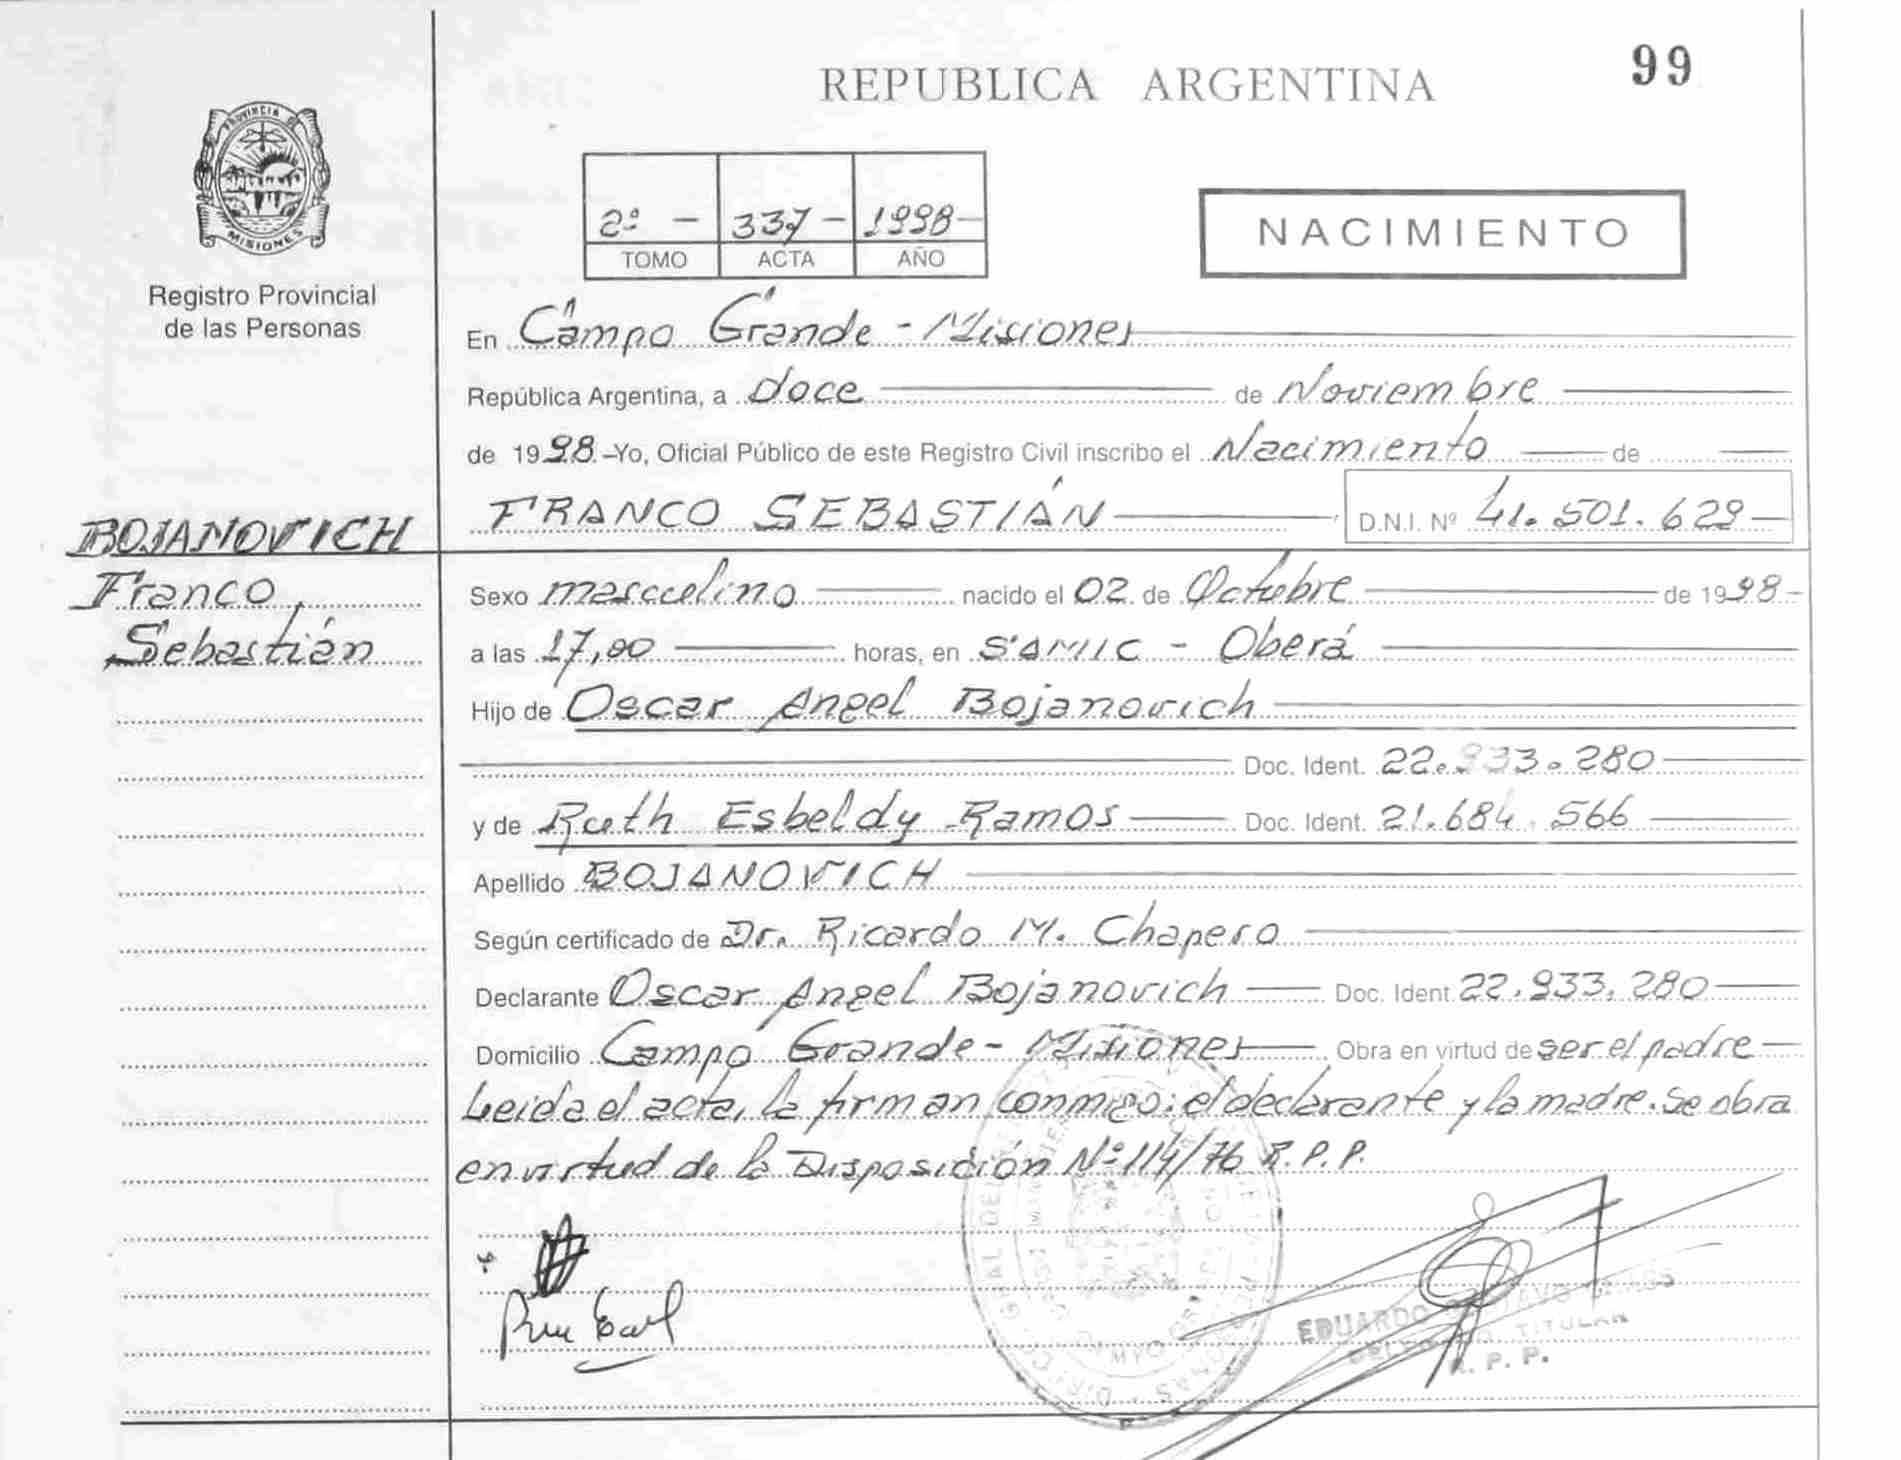 99
REPUBLICA ARGENTINA
PROVINCIA DE
MISIONES
Registro Provincial
de las Personas
2º - 337 - 1998 -
TOMO ACTA AÑO
NACIMIENTO
En Campo Grande - Misiones
República Argentina, a doce de Noviembre
de 1998.-Yo, Oficial Público de este Registro Civil inscribo el Nacimiento de
FRANCO SEBASTIÁN D.N.I. Nº 41.501.629
BOJANOVICH
Franco
Sebastián
Sexo masculino nacido el 02 de Octubre de 1998-
a las 17,00 horas, en SAMIC - Oberá
Hijo de Oscar Angel Bojanovich
Doc. Ident. 22.933.280
y de Ruth Esbeldy Ramos Doc. Ident. 21.684.566
Apellido BOJANOVICH
Según certificado de Dr. Ricardo M. Chapero
Declarante Oscar Angel Bojanovich Doc. Ident. 22.933.280
Domicilio Campo Grande - Misiones Obra en virtud de ser el padre
Leida el acta, la firman conmigo: el declarante y la madre. Se obra
en virtud de la Disposición Nº 114/76 R.P.P.
EDUARDO
TITULAR
R. P. P.